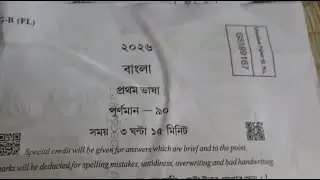 G-B (FL)
২০২৬
বাংলা
প্রথম ভাষা
পূর্ণমান — ৯০
সময় : ৩ ঘন্টা ১৫ মিনিট
Special credit will be given for answers which are brief and to the point.
marks will be deducted for spelling mistakes, untidiness, overwriting and bad handwriting.